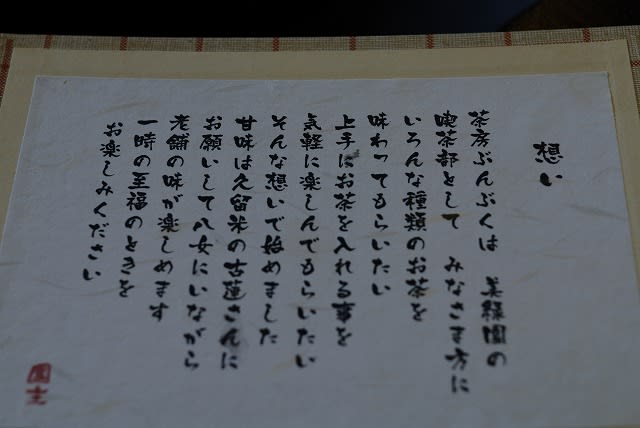 想い
茶房ぶんぶくは 美緑園の
喫茶部として みなさま方に
いろんな種類のお茶を
味わってもらいたい
上手にお茶を入れる事を
気軽に楽しんでもらいたい
そんな想いで始めました
甘味は久留米の古蓮さんに
お願いして八女にいながら
老舗の味が楽しめます
一時の至福のときを
お楽しみください
園主